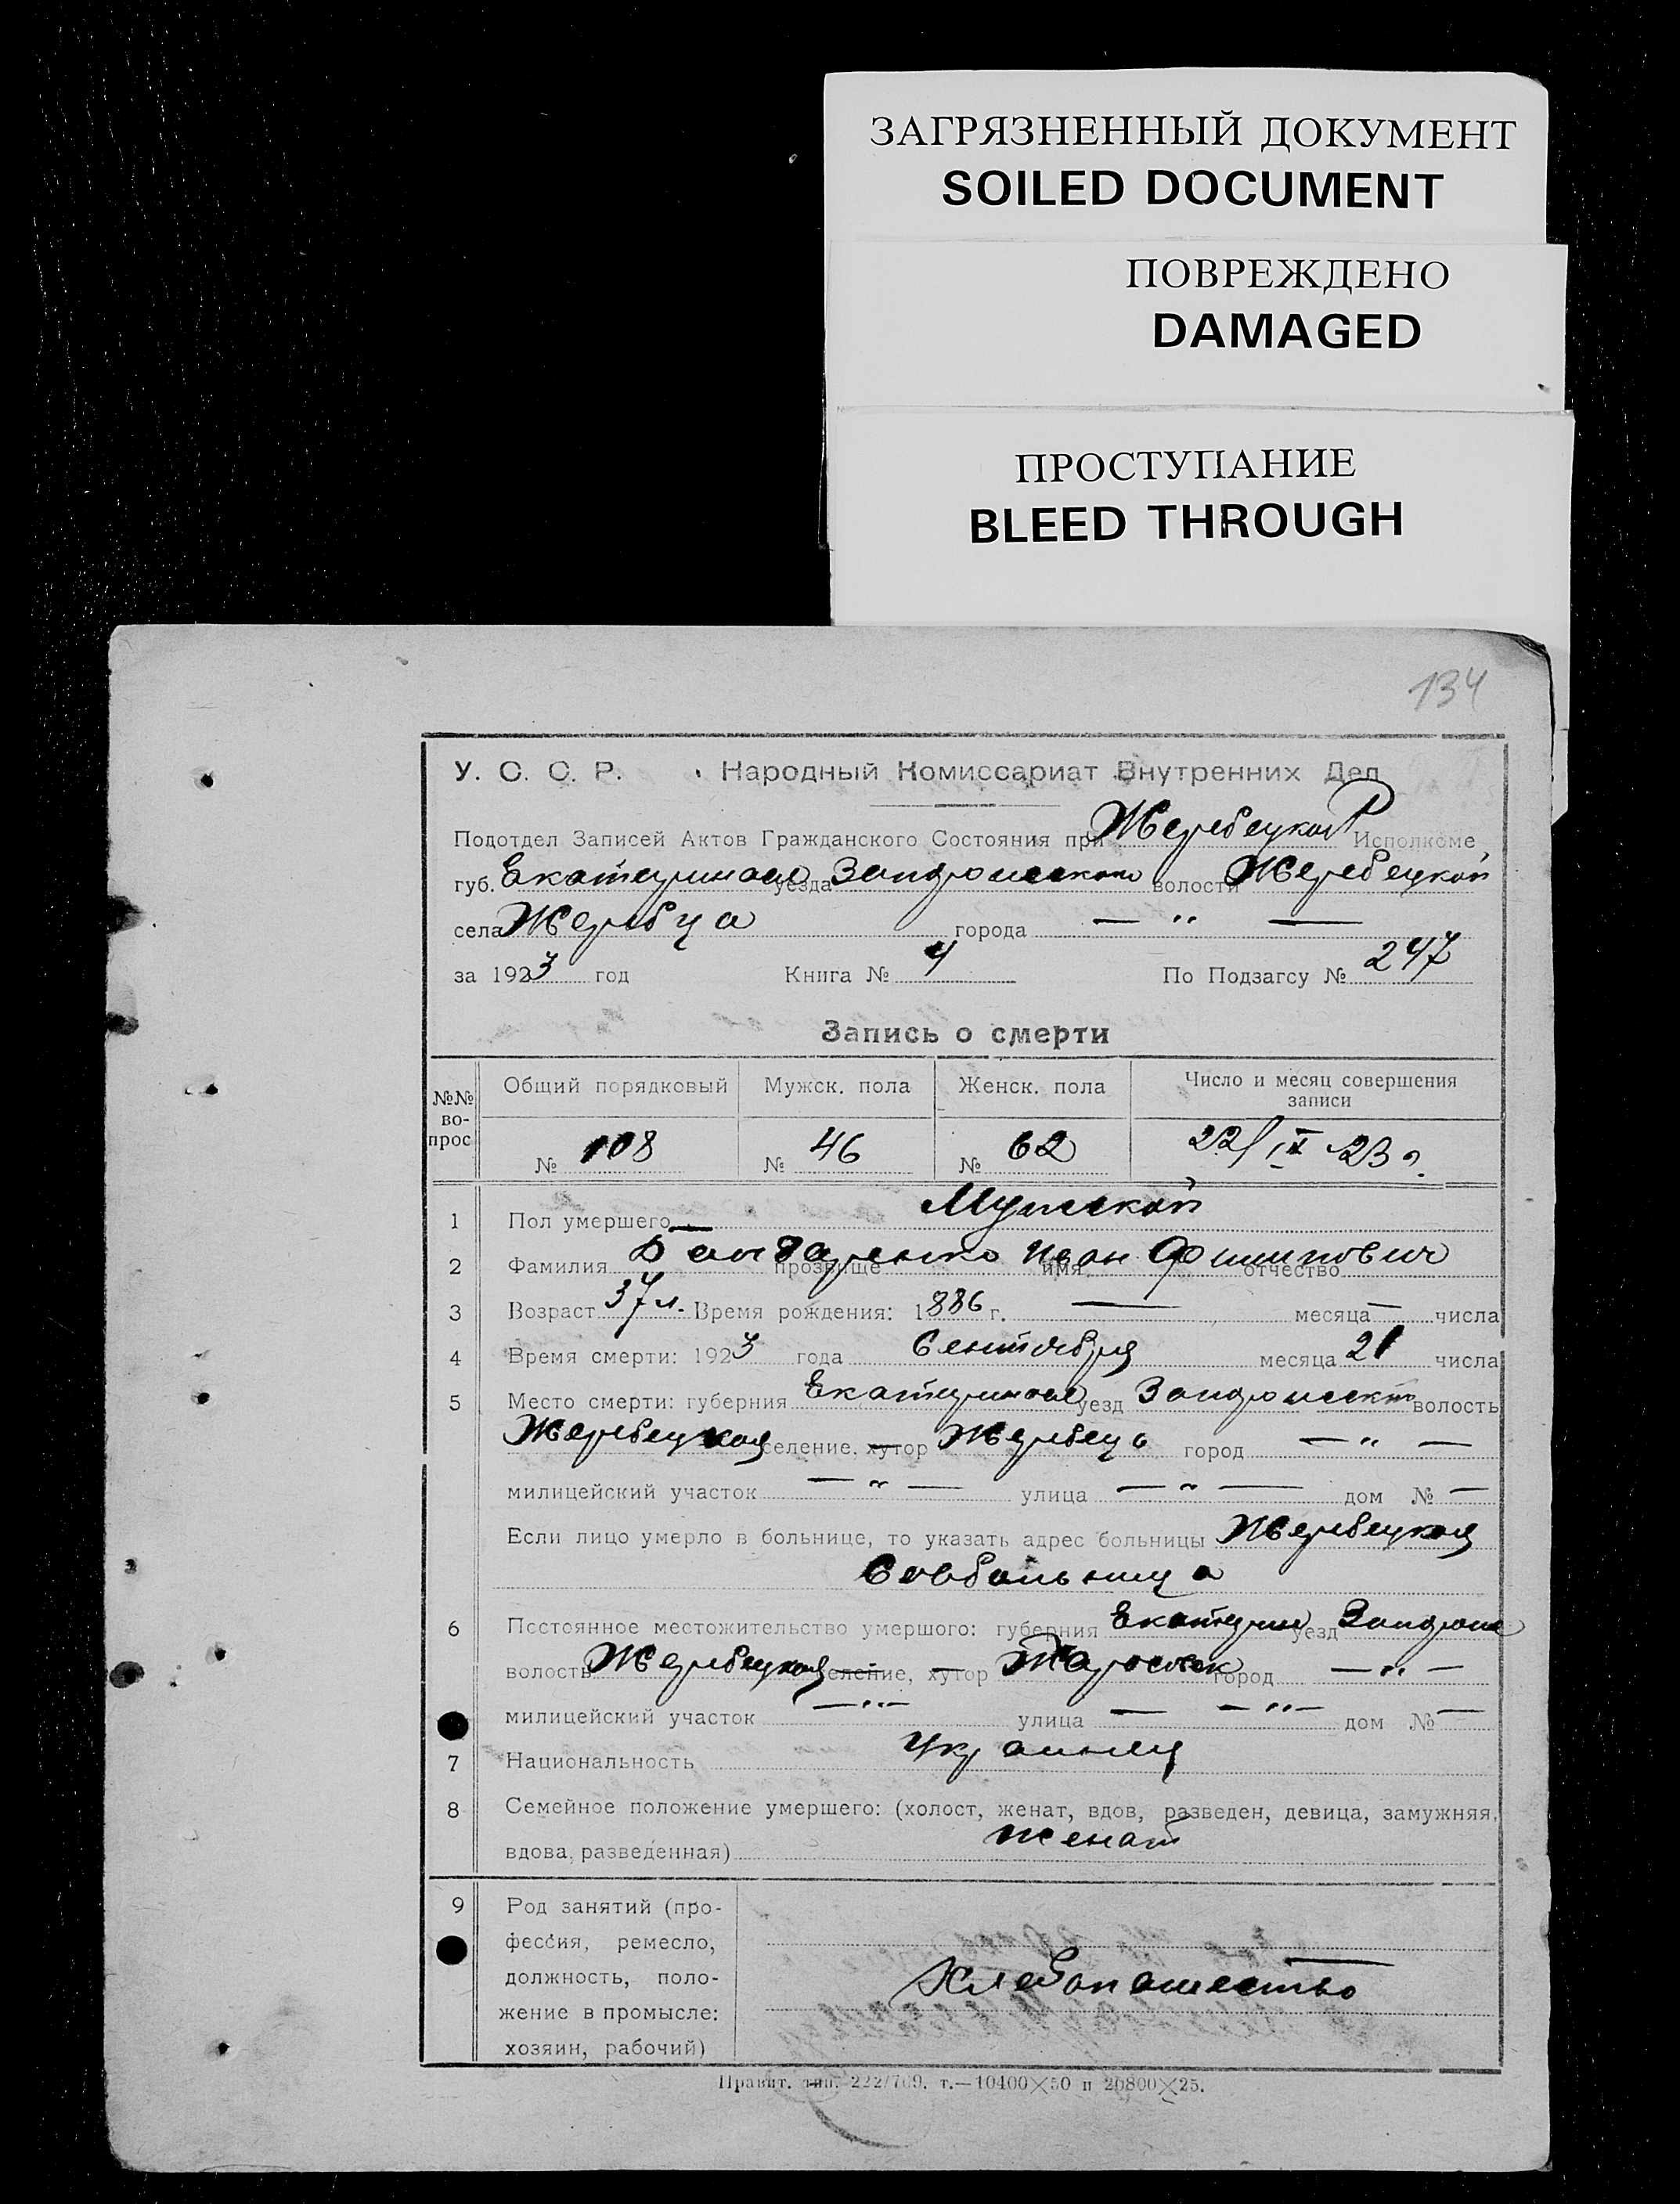 ЗАГРЯЗНЕННЫЙ ДОКУМЕНТ
SOILED DOCUMENT
ПОВРЕЖДЕНО
DAMAGED
ПРОСТУПАНИЕ
BLEED THROUGH
134
У. С. С. Р. Народный Комиссариат Внутренних Дел
Подотдел Записей Актов Гражданского Состояния при Жеребецком Р Исполкоме
губ. Екатериносл уезда Запорожского волости Жеребецкой
села Жеребца города — " —
за 1923 год Книга № 4 По Подзагсу № 247
Запись о смерти
№№ вопрос Общий порядковый Мужск. пола Женск. пола Число и месяц совершения записи
№ 108 № 46 № 62 22/IX 23 г.
1 Пол умершего Мужской
2 Фамилия Бондаренко прозвище имя Иван отчество Филипович
3 Возраст 37 л. Время рождения: 1886 г. — месяца — числа
4 Время смерти: 1923 года Сентября месяца 21 числа
5 Место смерти: губерния Екатериносл уезд Запорожск волость
Жеребецкая селение, хутор Жеребец город — " —
милицейский участок — " — улица — " — дом № —
Если лицо умерло в больнице, то указать адрес больницы Жеребецкая
Совбольница
6 Постоянное местожительство умершого: губерния Екатерин уезд Запорож
волость Жеребецкая селение, хутор город — " —
милицейский участок — " — улица — — " — дом № —
7 Национальность Украинец
8 Семейное положение умершего: (холост, женат, вдов, разведен, девица, замужняя,
вдова, разведенная) женат
9 Род занятий (про-
фессия, ремесло,
должность, поло-
жение в промысле:
хозяин, рабочий)
Хлебопашество
Правит. тип. 222/709. т.—10400×50 и 20800×25.